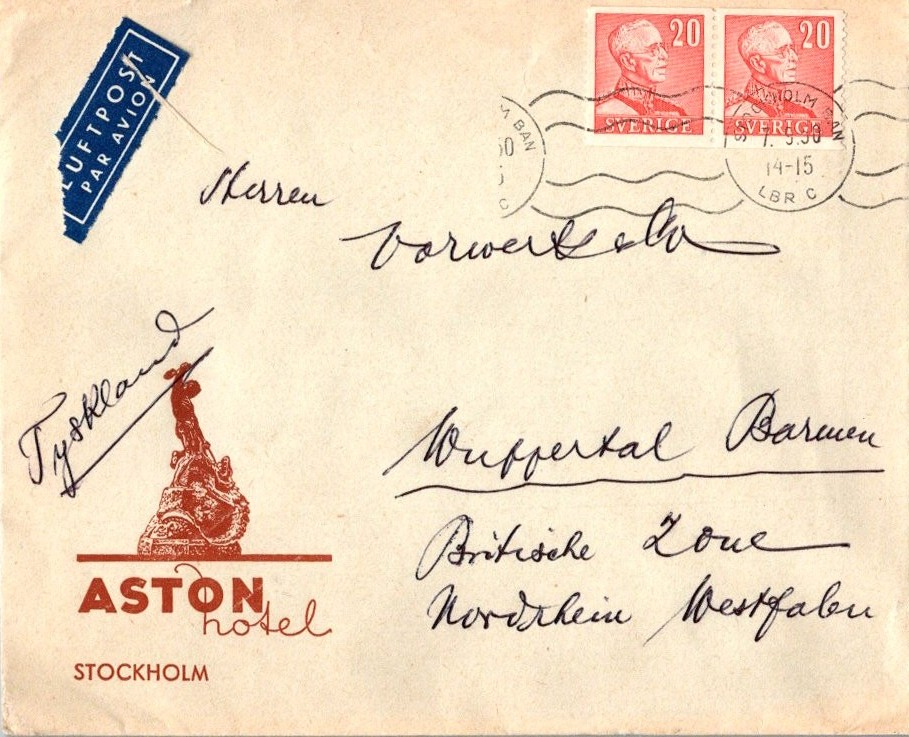 LUFTPOST
PAR AVION
20 20
SVERIGE SVERIGE
M BAN
STOCKHOLM BAN
7.9.50
14-15
LBR C
Herren
Vorwerk & Co
Tyskland
Wuppertal Barmen
Britische Zone
Nordrhein Westfalen
ASTON
hotel
STOCKHOLM